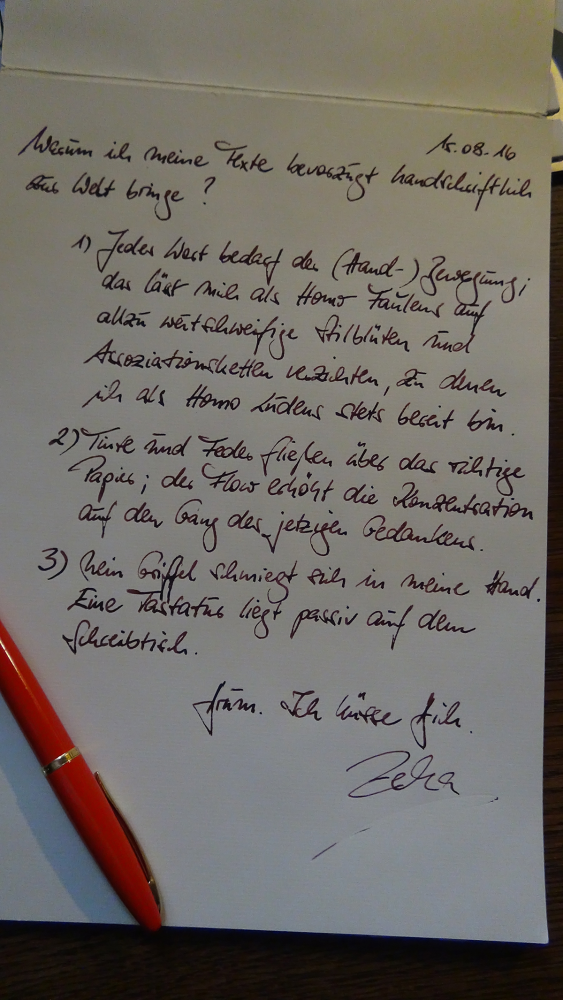 15.08.16
Warum ich meine Texte bevorzugt handschriftlich
zur Welt bringe?
1) Jedes Wort bedarf der (Hand-) Bewegung;
das lässt mich als Homo Faulens auf
allzu weitschweifige Stilblüten und
Assoziationsketten verzichten, zu denen
ich als Homo Ludens stets bereit bin.
2) Tinte und Feder fließen über das richtige
Papier; der Flow erhöht die Konzentration
auf den Gang des jetzigen Gedankens.
3) Mein Griffel schmiegt sich in meine Hand.
Eine Tastatur liegt passiv auf dem
Schreibtisch.
Drum. Ich küsse Dich.